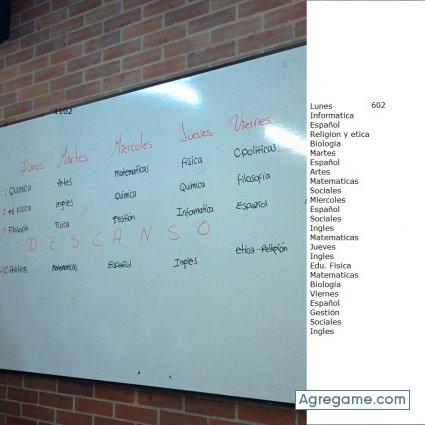 1102
Lunes Martes Miercoles Jueves Viernes
1 Quimica Artes matematicas Fisica CPoliticas
2 ed Fisica ingles Química Quimica filosofia
3 Filosofia Fisica Gestión Informatica Español
DESCANSO
4 CPoliticas Matematicas Español Ingles etica-Religión
Lunes 602
Informatica
Español
Religion y etica
Biologia
Martes
Español
Artes
Matematicas
Sociales
Miercoles
Español
Sociales
Ingles
Matematicas
Jueves
Ingles
Edu. Fisica
Matematicas
Biologia
Viernes
Español
Gestión
Sociales
Ingles
Agregame.com